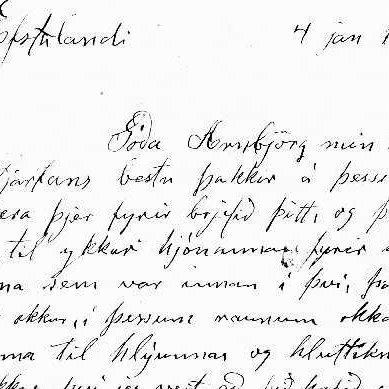 Efstalandi 4 jan 1
Góða Arnbjörg min
hjartans bestu þakkir á þessi
vera þjer fyrir brjefið þitt, og þ
til ykkar hjónanna fyrir
na sem var innan i því, þa
okkar, i þessum raunum okka
ma til hlýunnar og hluttekn